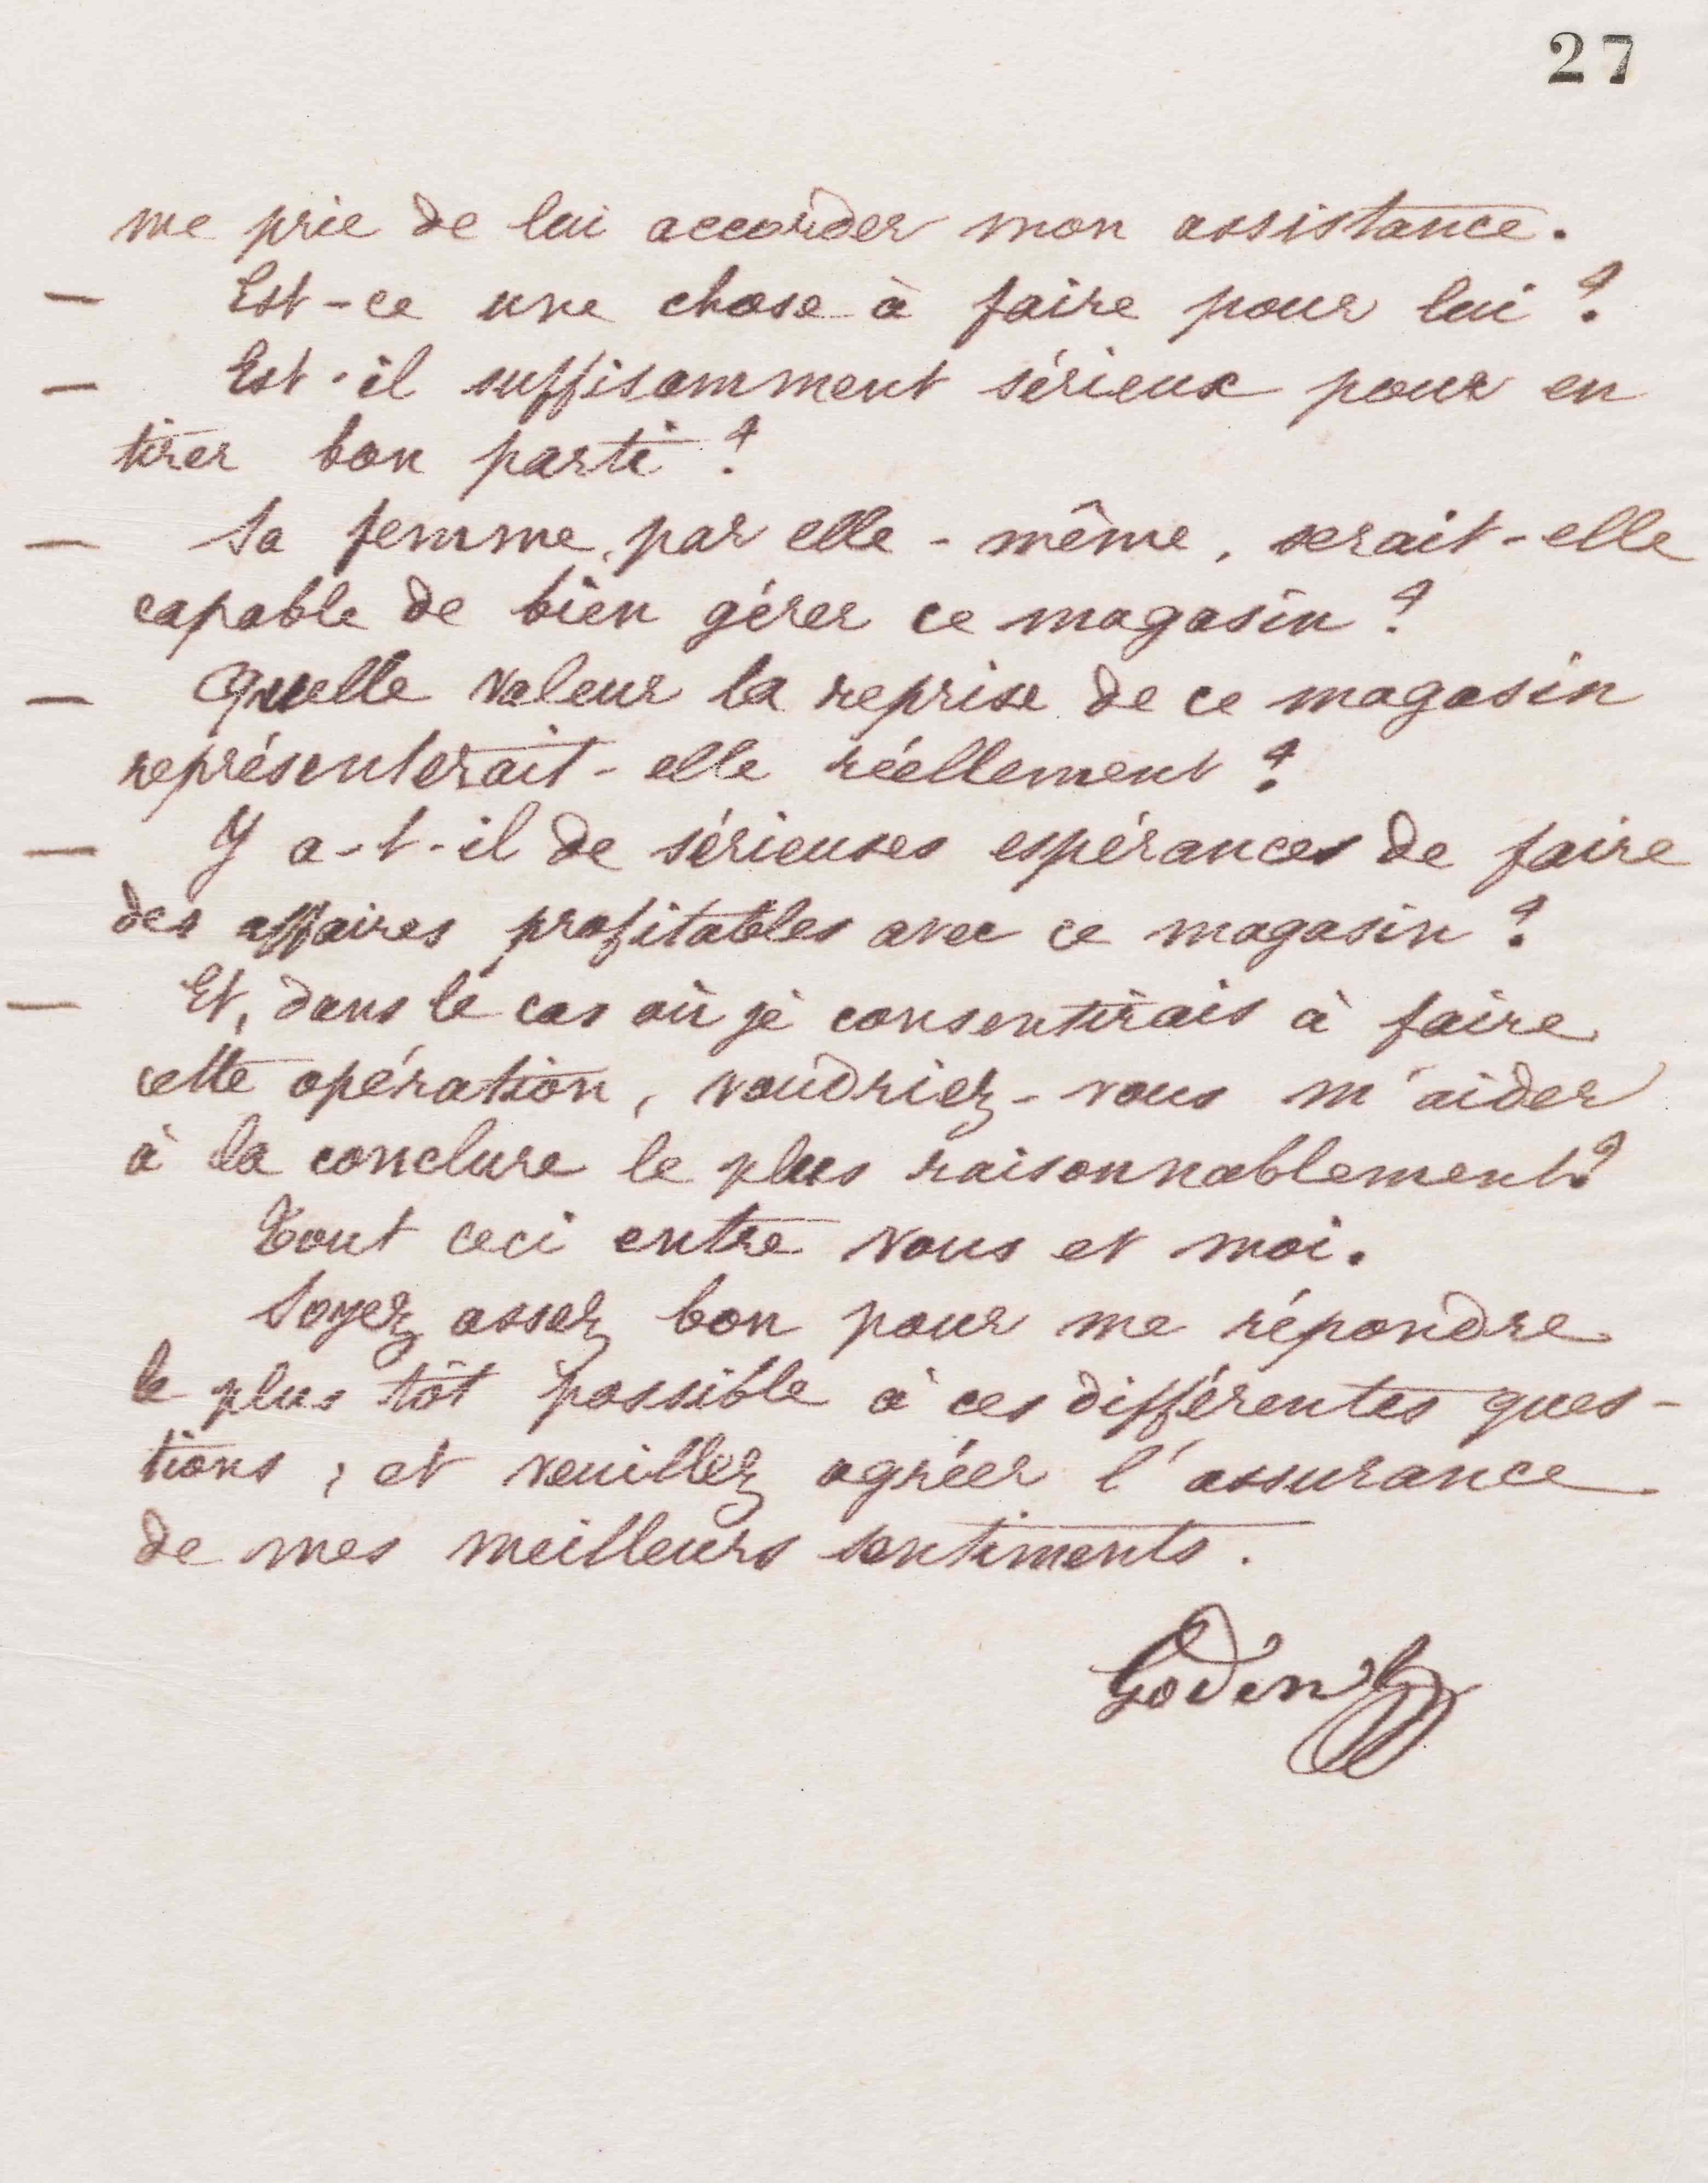 27
me prie de lui accorder mon assistance.
— Est-ce une chose à faire pour lui ?
— Est-il suffisamment sérieux pour en
tirer bon parti ?
— Sa femme, par elle-même, serait-elle
capable de bien gérer ce magasin ?
— Quelle valeur la reprise de ce magasin
représenterait-elle réellement ?
— Y a-t-il de sérieuses espérances de faire
des affaires profitables avec ce magasin ?
— Et, dans le cas où je consentirais à faire
cette opération, voudriez-vous m'aider
à la conclure le plus raisonnablement ?
Tout ceci entre vous et moi.
Soyez assez bon pour me répondre
le plus tôt possible à ces différentes ques-
tions, et veuillez agréer l'assurance
de mes meilleurs sentiments.
Godin